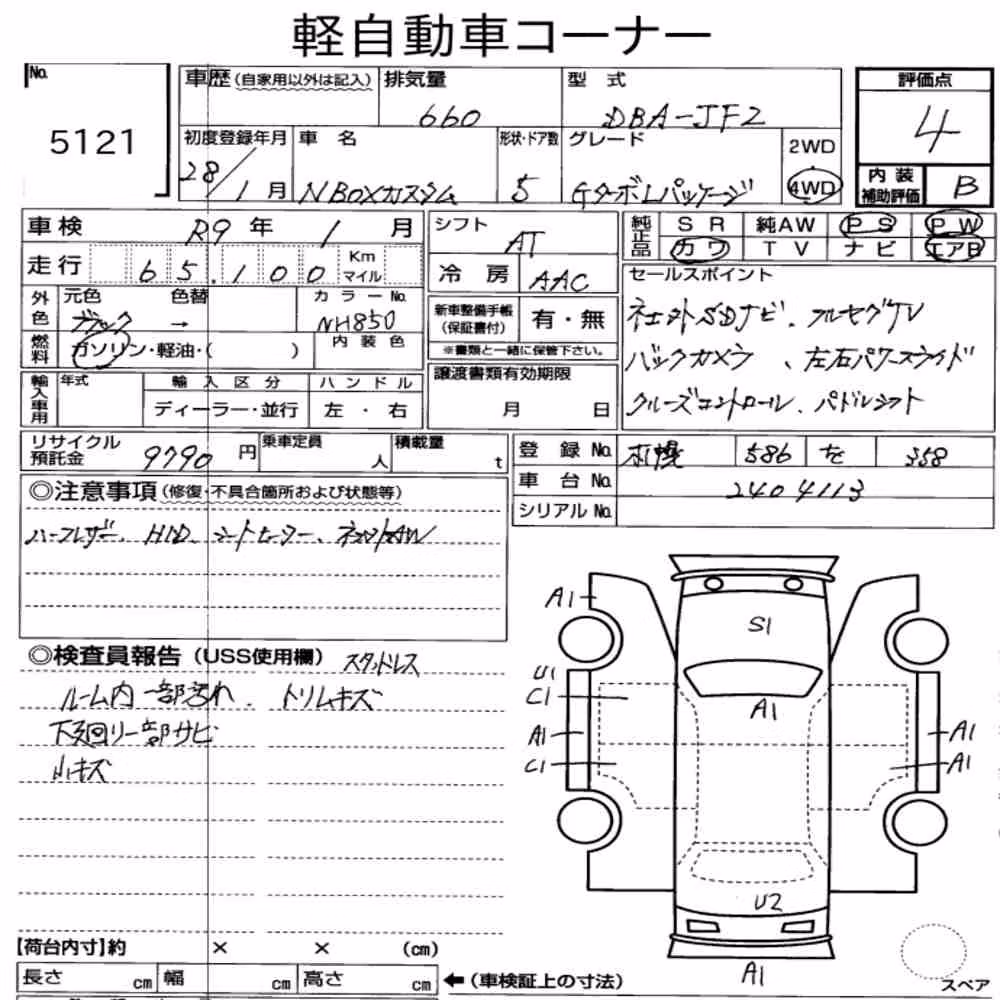 軽自動車コーナー
No. 5121
車歴(自家用以外は記入) 排気量 660 型式 DBA-JF2
評価点 4
初度登録年月 28/1月 車名 NBOXカスタム 形状・ドア数 5 グレード GターボLパッケージ 2WD 4WD
内装補助評価 B
車検 R9年 1月 シフト AT
純正品 SR 純AW PS PW
カワ TV ナビ エアB
走行 65,100 Km マイル 冷房 AAC
外色 元色 ブラック 色替 → カラーNo. NH850
燃料 ガソリン・軽油・( ) 内装色
新車整備手帳(保証書付) 有・無
※書類と一緒に保管下さい。
セールスポイント
ギャザズSDナビ、フルセグTV
バックカメラ、左右パワースライド
クルーズコントロール、パドルシフト
輸入車用 年式 輸入区分 ハンドル
ディーラー・並行 左・右
譲渡書類有効期限 月 日
リサイクル預託金 9790円 乗車定員 人 積載量 t
登録No. 札幌 586 を 358
車台No. 2404113
シリアルNo.
◎注意事項(修復・不具合箇所および状態等)
ハーフレザー、HID、シートヒーター、
◎検査員報告(USS使用欄) スタッドレス
ルーム内一部汚れ、トリムキズ
下廻り一部サビ
小キズ
A1
S1
U1
C1
A1
A1
C1
A1
A1
U2
A1
【荷台内寸】約 × × (cm)
長さ cm 幅 cm 高さ cm ←(車検証上の寸法)
スペア